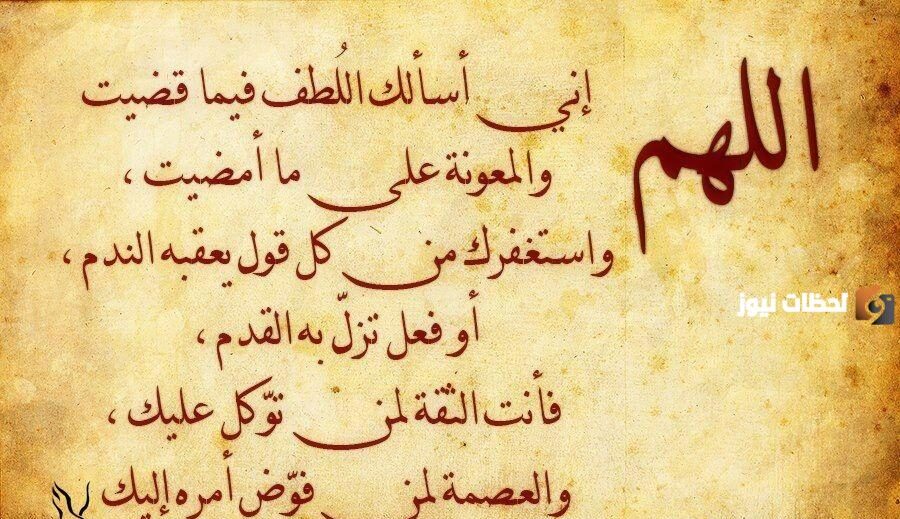 اللهم
إني أسألك اللُطف فيما قضيت
والمعونة على ما أمضيت ،
واستغفرك من كل قول يعقبه الندم ،
أو فعل تزلّ به القدم ،
فأنت الثقة لمن توّكل عليك ،
والعصمة لمن فوّض أمره إليك
لحظات نيوز